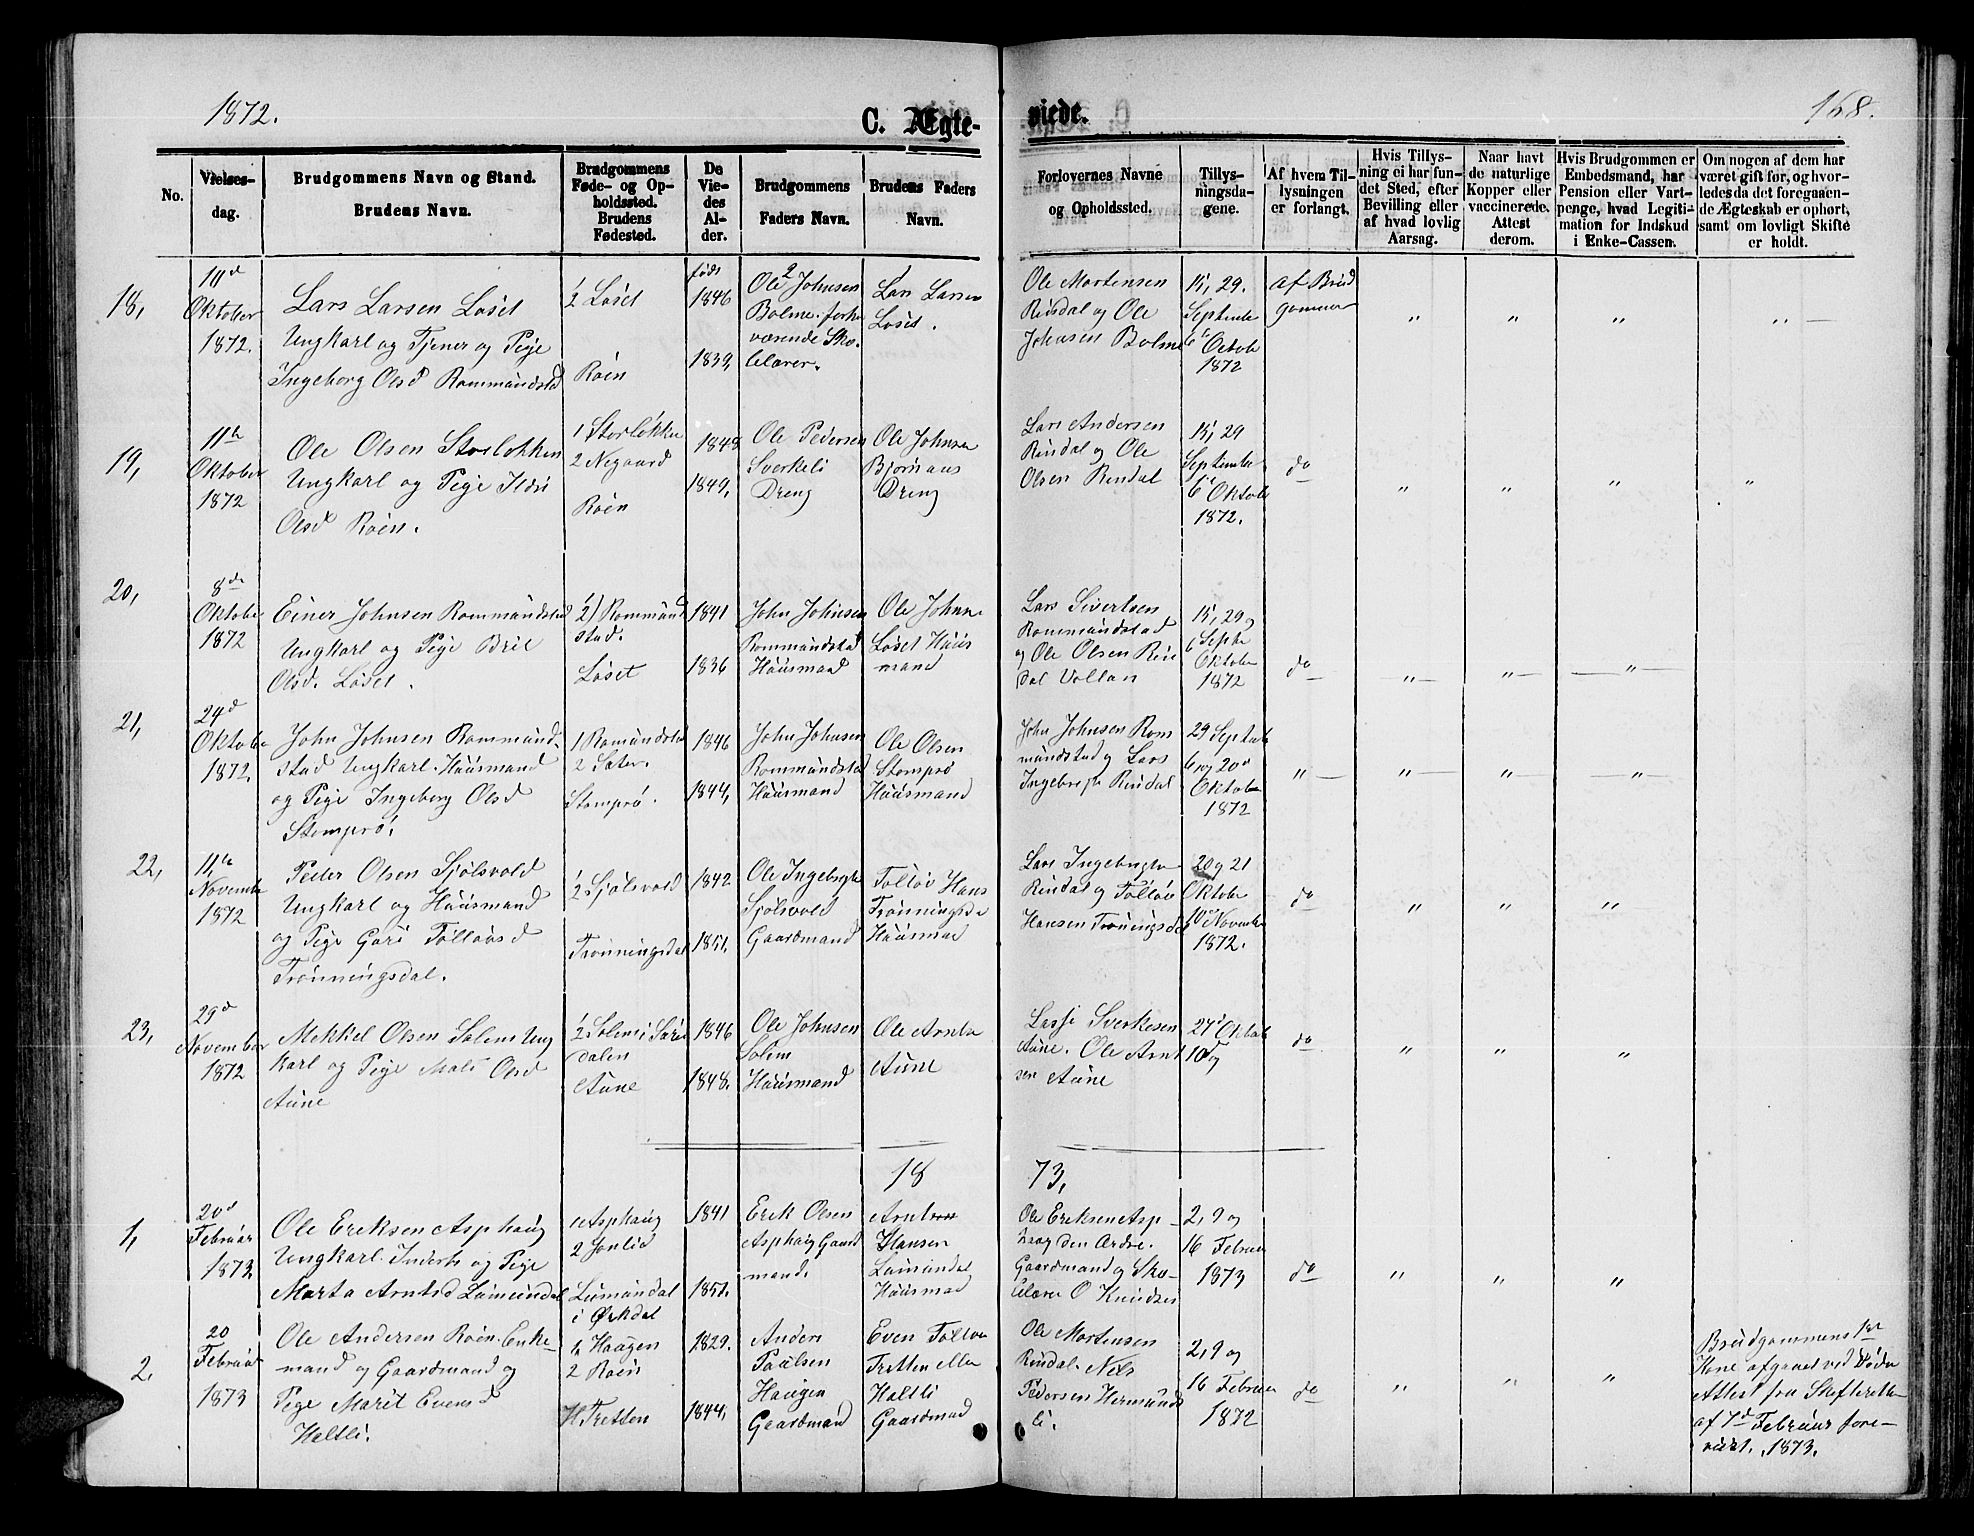 1872.
C. Ægte-
viede.
168.
No.
Vielses-
dag.
Brudgommens Navn og Stand.
Brudens Navn.
Brudgommens
Føde- og Op-
holdssted.
Brudens
Fødested.
De
Vie-
des
Al-
der.
Brudgommens
Faders Navn.
Brudens Faders
Navn.
Forlovernes Navne
og Opholdssted.
Tillys-
ningsda-
gene.
Af hvem Til-
lysningen
er forlangt.
Hvis Tillys-
ning ei har fun-
det Sted, efter
Bevilling eller
af hvad lovlig
Aarsag.
Naar havt
de naturlige
Kopper eller
vaccinerede.
Attest
derom.
Hvis Brudgommen er
Embedsmand, har
Pension eller Vart-
penge, hvad Legiti-
mation for Indskud
i Enke-Cassen.
Om nogen af dem har
været gift før, og hvor-
ledes da det foregaaen-
de Ægteskab er ophørt,
samt om lovligt Skifte
er holdt.
18,
Oktober
1872.
Lars Larsen Løset
Ungkarl og Tjener og Pige
Ingeborg Olsd Rommundstad
1/2 Løset
Roen
født
1846
1839,
2
Ole Johnsen
Bolme. forhe
værende Sko-
lelærer.
1
Lars Larsen
Løset.
Ole Mortensen
Rindal og Ole
Johnsen Bolme
15, 29.
Septembe
6 Octobe
1872
af Brud
gommen
" " " "
19,
11te
Oktober
1872
Ole Olsen Storløkken
Ungkarl og Pige Ildri
Olsd Roen.
1 Storløkke
2 Negaard
Roen
1848
1849,
Ole Pedersen
Sverkeli
Dreng
Ole Johnsen
Bjørnaas
Dreng
Lars Andersen
Rindal og Ole
Olsen Rindal
15, 29
Septembe
6te Oktobe
1872.
do
" " " "
20,
8de
Oktobe
1872
Einer Johnsen Rommundstad
Ungkarl og Pige Brit
Olsd. Løset.
1/2) Rommund
stad.
Løset
1841
1836
John Johnsen
Rommundstad
Huusmand
Ole Johnse
Løset Huus
mand
Lars Sivertsen
Rommundstad
og Ole Olsen Rin
dal Vollan
15, 29 og
6 Septbe
Oktobe
1872
do
" " "
21,
24d
Oktobe
1872,
John Johnsen Rommund-
stad Ungkarl. Huusmand
og Pige Ingeborg Olsd
Stomprø.
1 Romundstad
2 Sæter.
Stomprø.
1846
1844,
John Johnsen
Rommundstad
Huusmand
Ole Olsen
Stomprø
Huusmand
John Johnsen Rom
mundstad og Lars
Ingebrigts Rindal
29 Septembe
6 og 20d
Oktober
1872
" " " "
22,
11te
Novembe
1872
Peder Olsen Sjølsvold
Ungkarl og Huusmand
og Pige Guri Tolløvsd
Trønningsdal.
1/2 Sjølsvold
Trønningsdal
1842
1851.
Ole Ingebrigts
Sjølsvold
Gaardmand
Tolløv Hans
Trønningsda
Huusmad
Lars Ingebrigts
Rindal og Tolløv
Hansen Trønningsda
20 og 21
Oktobe
10d Novembe
1872.
do
" " "
23,
29d
November
1872
Mekkel Olsen Solem Ung
karl og Pige Mali Olsd
Aune
1/2 Solem i Suren
dalen
Aune
1846
1848.
Ole Johnsen
Solem
Huusmand
Ole Arntse
Aune
Lasse Sverkesen
Aune. Ole Arnt
sen Aune
27d Oktobe
10d og
do
" " "
18
73,
1,
20d
Februar
1873
Ole Eriksen Asphaug
Ungkarl. Inderst og Pige
Marta Arntsd Lumundal
1 Asphaug
2 Jonlid
Lumundal
i Ørkdal
1841
1851.
Erik Olsen
Asphaug Gaard
mand.
Arnt
Hansen
Lumundal
Huusmad
Ole Eriksen Asp-
haug den Ældre.
Gaardmand og Sko-
lelærer O Knudsen
2, 9 og
16 Februar
1873
do
" " "
2.
20
Februar
1873
Ole Andersen Roen. Enke-
mand og Gaardmand og
Pige Marit Evensd
Haltli.
1 Haugen
2 Roen
Tretten
1829.
1844,
Anders
Paulsen
Haugen
Gaardmand
Even Tollev
Tretten eller
Haltli
Gaardmad
Ole Mortensen
Rindal. Nils
Pedersen Hermunds
li.
2, 9 og
16 Februar
1872
do
" " "
Brudgommens 1ste
Kone afgaaet ved Døde
Attest fra Skifteretten
af 7d Februar fore-
viist. 1873.